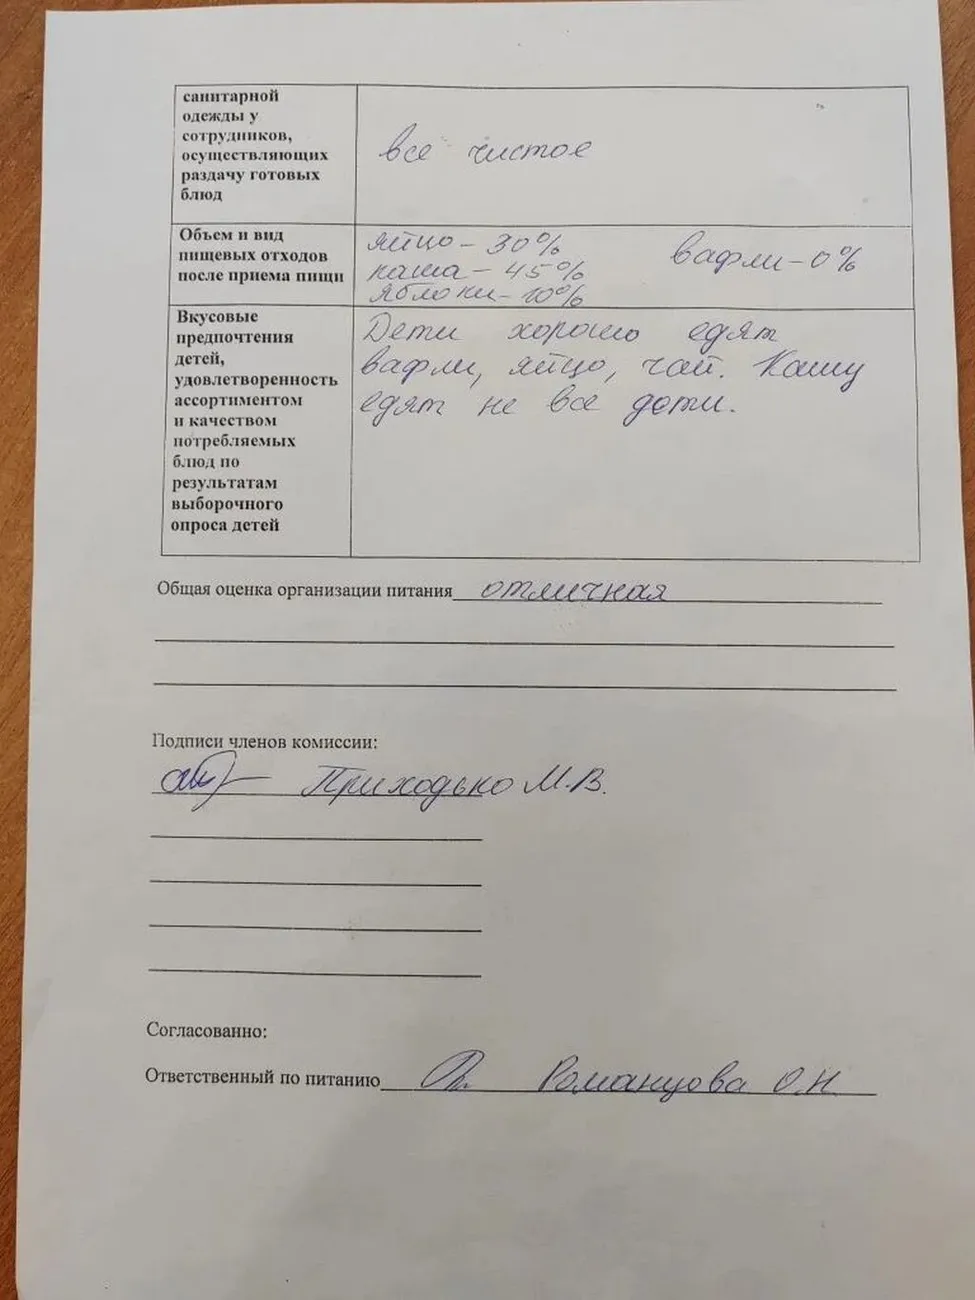 санитарной
одежды у
сотрудников,
осуществляющих
раздачу готовых
блюд
все чистое
Объем и вид
пищевых отходов
после приема пищи
яйцо - 30% вафли - 0%
каша - 45%
яблоки - 10%
Вкусовые
предпочтения
детей,
удовлетворенность
ассортиментом
и качеством
потребляемых
блюд по
результатам
выборочного
опроса детей
Дети хорошо едят
вафли, яйцо, чай. Кашу
едят не все дети.
Общая оценка организации питания отличная
Подписи членов комиссии:
Приходько М.В.
Согласованно:
Ответственный по питанию Романцова О.Н.